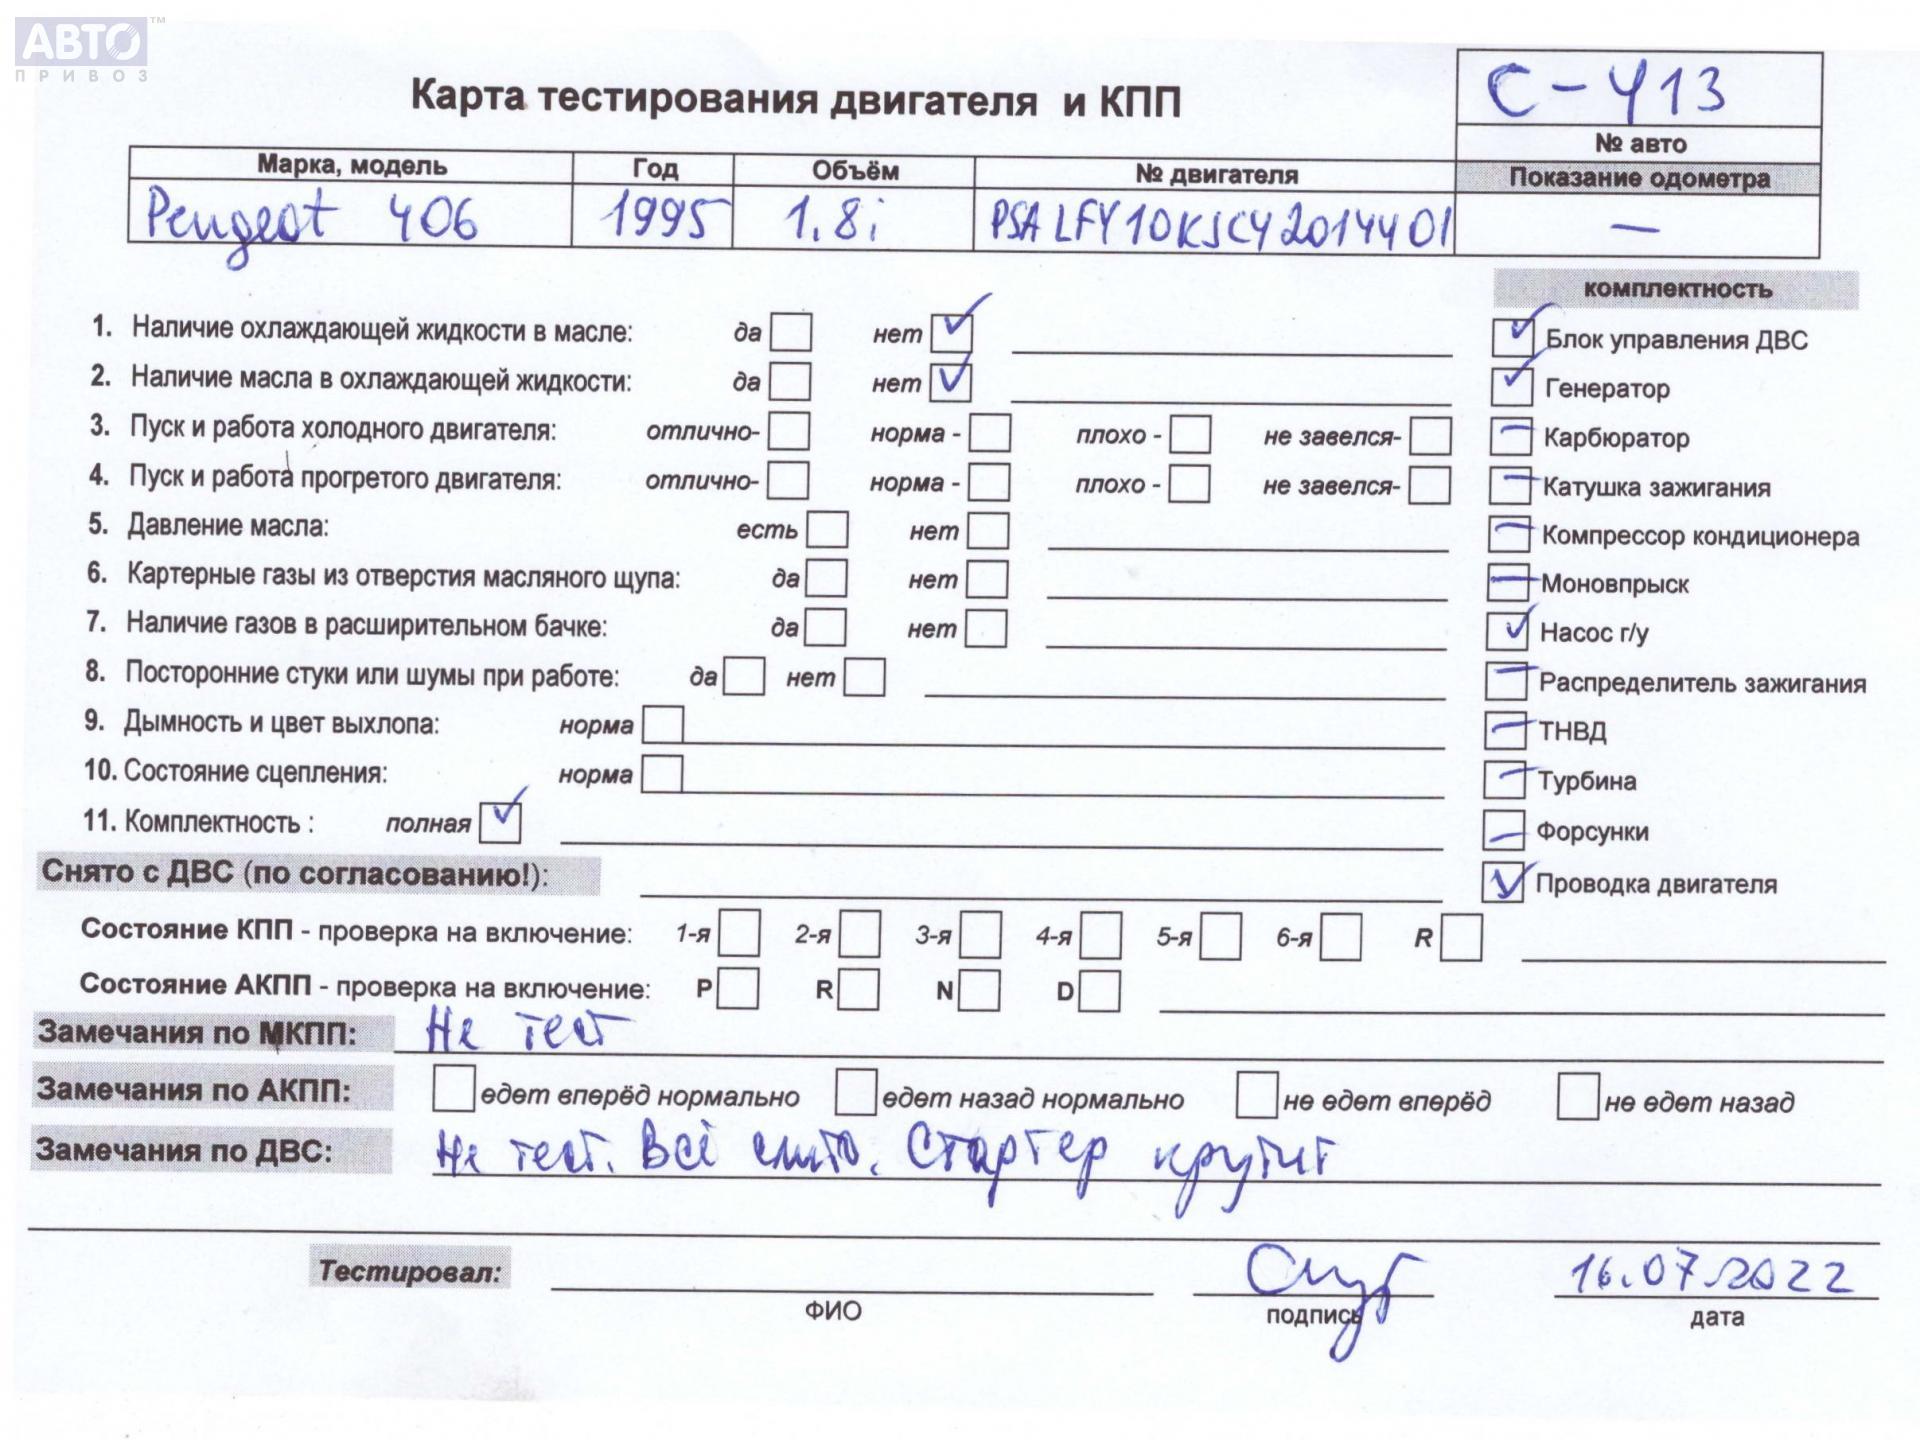 АВТО™
ПРИВОЗ
Карта тестирования двигателя и КПП
С-413
№ авто
Марка, модель Год Объём № двигателя Показание одометра
Peugeot 406 1995 1.8i PSA LFY10KJCY2014401 —
комплектность
1. Наличие охлаждающей жидкости в масле: да нет ✓
2. Наличие масла в охлаждающей жидкости: да нет ✓
3. Пуск и работа холодного двигателя: отлично- норма - плохо - не завелся-
4. Пуск и работа прогретого двигателя: отлично- норма - плохо - не завелся-
5. Давление масла: есть нет
6. Картерные газы из отверстия масляного щупа: да нет
7. Наличие газов в расширительном бачке: да нет
8. Посторонние стуки или шумы при работе: да нет
9. Дымность и цвет выхлопа: норма
10. Состояние сцепления: норма
11. Комплектность : полная ✓
✓ Блок управления ДВС
✓ Генератор
— Карбюратор
— Катушка зажигания
— Компрессор кондиционера
— Моновпрыск
✓ Насос г/у
— Распределитель зажигания
— ТНВД
— Турбина
— Форсунки
✓ Проводка двигателя
Снято с ДВС (по согласованию!):
Состояние КПП - проверка на включение: 1-я 2-я 3-я 4-я 5-я 6-я R
Состояние АКПП - проверка на включение: P R N D
Замечания по МКПП: Не тест
Замечания по АКПП: едет вперёд нормально едет назад нормально не едет вперёд не едет назад
Замечания по ДВС: Не тест. Всё снято. Стартер крутит
Тестировал: 16.07.2022
ФИО подпись дата